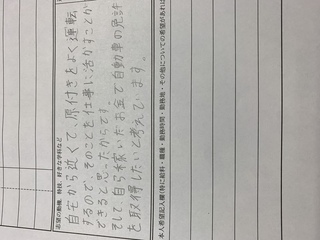 志望の動機、特技、好きな学科など
自宅から近くて、原付きをよく運転
するので、そのことを仕事に活かすことが
できると思ったからです。
そして、自ら稼いだお金で自動車の免許
を取得したいと考えています。
本人希望記入欄(特に給料・職種・勤務時間・勤務地・その他についての希望があれば